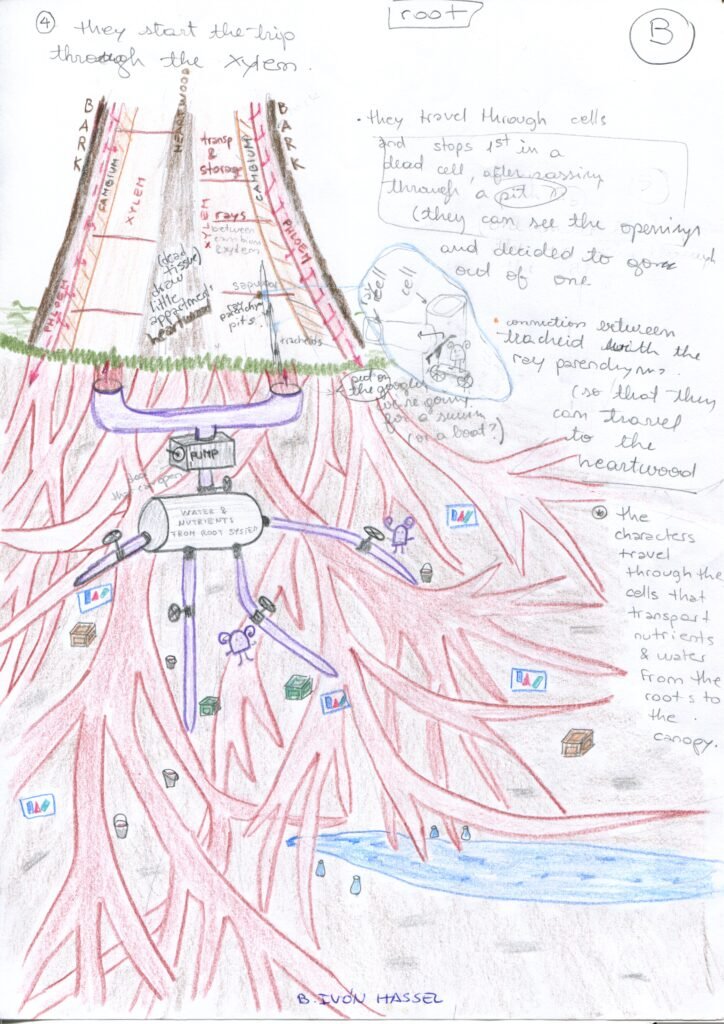 4
they start the trip
through the xylem.
root
B
BARK
PHLOEM
CAMBIUM
XYLEM
HEARTWOOD
transp
&
storage
XYLEM
rays
between
cambium
&xylem
CAMBIUM
PHLOEM
BARK
(dead
tissue)
draw
little
appartment
heartwood
ray
parenchym
pits.
tracheids
cell
• they travel through cells
and stops 1st in a
dead cell, after passing
through a pit.
(they can see the openings
and decided to go
out of one
• connection between
tracheid with the
ray parenchyma.
(so that they
can travel
to the
heartwood
put on
the googles
we're going
for a swim
(or a boat?)
PUMP
that can open
WATER &
NUTRIENTS
FROM ROOT SYSTEM
* the
characters
travel
through the
cells that
transport
nutrients
& water
from the
roots to
the
canopy.
B. IVÓN HASSEL